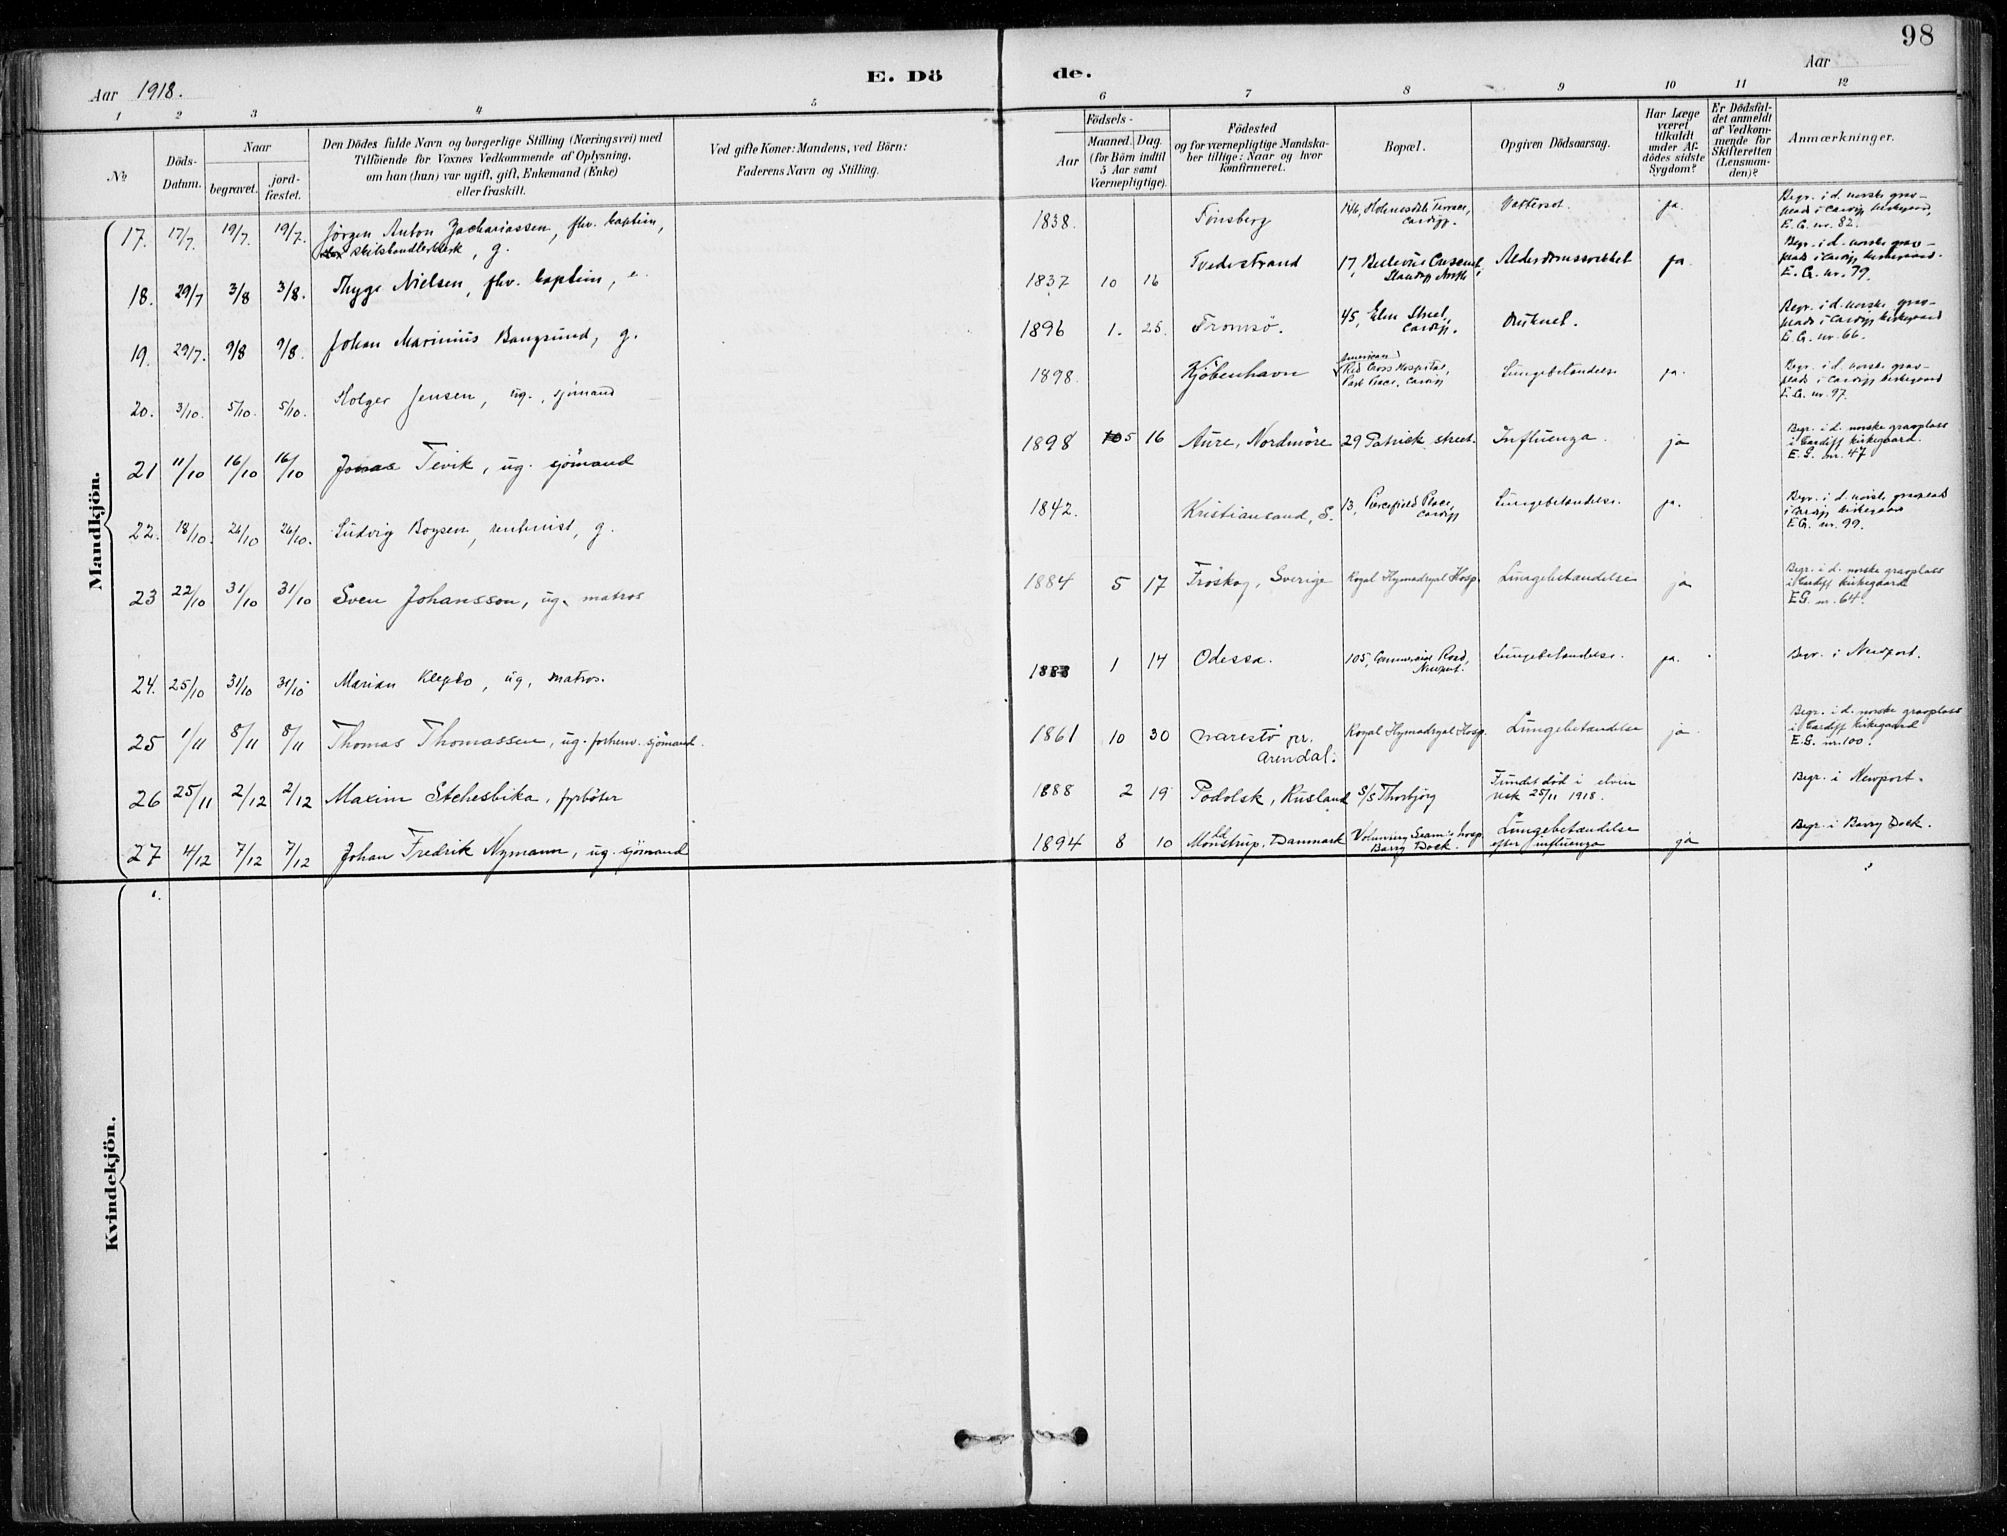 98
E. Døde.
Aar 1918.
Aar
1 2 3 4 5 6 7 8 9 10 11 12
№
Döds-Datum.
Naar
begravet.
jord-fæstet.
Den Dödes fulde Navn og borgerlige Stilling (Næringsvei) med
Tilföiende for Voxnes Vedkommende af Oplysning,
om han (hun) var ugift, gift, Enkemand (Enke)
eller fraskilt.
Ved gifte Koner: Mandens, ved Börn:
Faderens Navn og Stilling.
Födsels-
Aar
Maaned. Dag.
(for Börn indtil
5 Aar samt
Værnepligtige).
Födested
og for værnepligtige Mandska-
ber tillige: Naar og hvor
konfirmeret.
Bopæl.
Opgiven Dödsaarsag.
Har Læge
været
tilkaldt
under Af-
dödes sidste
Sygdom?
Er Dödsfal-
det anmeldt
af Vedkom-
mende for
Skifteretten
(Lensman-
den)?
Anmærkninger.
Mandkjön.
17. 17/7. 19/7. 19/7. Jörgen Anton Zachariassen, fhv. kaptein, skibshandlerklerk, g. 1838. Tönsberg 146, Holmesdale Terrace, Cardiff. Vattersot. ja. Begr. i d. norske grav-
plads i Cardiff kirkegaard,
E. G. nr. 82.
18. 29/7 3/8 3/8. Thyge Nielsen, fhv. kaptein, e. 1837 10 16 Tvedestrand 17, Bellevue Crescent, Llandaff North Alderdomssvækket ja. Begr. i d. norske grav-
plads i Cardiff kirkegaard.
E. G. nr. 79.
19. 29/7. 9/8 9/8. Johan Marinius Bangsund, g. 1896 1. 25. Tromsö. 45, Elm Street, Cardiff. druknet. Begr. i d. norske grav-
plads i Cardiff kirkegaard
E. G. nr. 66.
20. 3/10. 5/10. 5/10. Holger Jensen, ug., sjömand 1898. Kjöbenhavn American Red Cross Hospital, Park Place, Cardiff Lungebetændelse ja. Begr. i d. norske grav-
plads i Cardiff kirkegaard
E. G. nr. 97.
21 11/10 16/10 16/10 Jonas Tevik, ug. sjömand 1898 5 16 Aure, Nordmöre 29 Patrick street. Influenza. ja Begr. i d. norske gravplass
i Cardiff kirkegaard.
E. G. nr. 47
22. 18/10. 26/10 26/10. Ludvig Boysen, rentenist, g. 1842. Kristiansand, S. 13, Place, Cardiff Lungebetændelse. ja. Begr. i d. norske gravplads
i Cardiff kirkegaard
E G. nr. 99.
23 22/10 31/10 31/10 Sven Johansson, ug. matros 1884 5 17 Fröskog, Sverige Royal Hamadryad Hosp. Lungebetændelse ja Begr. i d. norske gravplass
i Cardiff kirkegaard
E G. nr. 64.
24. 25/10 31/10 31/10 Marian, ug, matros. 1 14 Odessa. 105, Commercial Road, Newport. Lungebetændelse. ja. Begr. i Newport.
25 1/11 8/11 8/11 Thomas Thomassen, ug. forhenv. sjömand. 1861 10 30 Narestö pr. Arendal. Royal Hamadryad Hosp. Lungebetændelse ja Begr. i d. norske gravplass
i Cardiff kirkegaard
E. G. nr. 100.
26 25/11 2/12 2/12 Maxim Stchesbika, fyrböter 1888 2 19 Podolsk, Rusland S/S Thorbjörg Fundet död i elven Usk 25/11 1918. Begr. i Newport.
27 4/12 7/12 7/12 Johan Fredrik Nymann, ug. sjömand 1894 8 10 Mönstrup, Danmark Seam's hosp. Barry Dock. Lungebetændelse efter influenza ja Begr. i Barry Dock.
Kvindekjön.